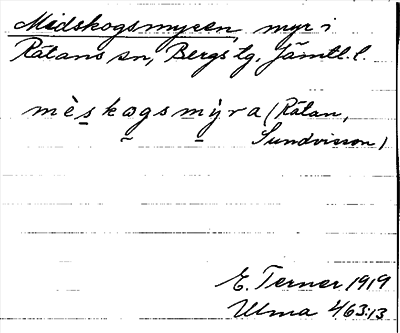 Midskogsmyren, myr i
Rätans sn, Bergs tg, Jämtl. l.
mèskogsmyra (Rätan,
Sundvisson)
E. Terner 1919
Ulma 463:13